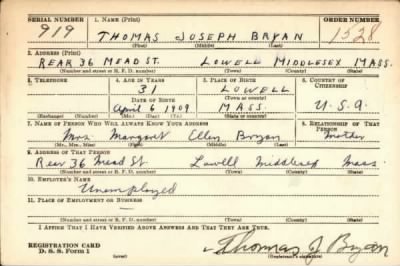 SERIAL NUMBER 1. NAME (Print) ORDER NUMBER
919 THOMAS JOSEPH BRYAN 1528
(First) (Middle) (Last)
2. ADDRESS (Print)
REAR 36 MEAD ST. LOWELL MIDDLESEX MASS.
(Number and street or R. F. D. number) (Town) (County) (State)
3. TELEPHONE 4. AGE IN YEARS 5. PLACE OF BIRTH 6. COUNTRY OF CITIZENSHIP
31 LOWELL
DATE OF BIRTH (Town or county)
April 6 1909 MASS. U.S.A.
(Exchange) (Number) (Mo.) (Day) (Yr.) (State or country)
7. NAME OF PERSON WHO WILL ALWAYS KNOW YOUR ADDRESS 8. RELATIONSHIP OF THAT PERSON
Mrs. Margaret Ellen Bryan Mother
(Mr., Mrs., Miss) (First) (Middle) (Last)
9. ADDRESS OF THAT PERSON
Rear 36 Mead St Lowell Middlesex Mass.
(Number and street or R. F. D. number) (Town) (County) (State)
10. EMPLOYER'S NAME
Unemployed
11. PLACE OF EMPLOYMENT OR BUSINESS
(Number and street or R. F. D. number) (Town) (County) (State)
I AFFIRM THAT I HAVE VERIFIED ABOVE ANSWERS AND THAT THEY ARE TRUE.
REGISTRATION CARD Thomas J Bryan
D. S. S. Form 1 (Registrant's signature)